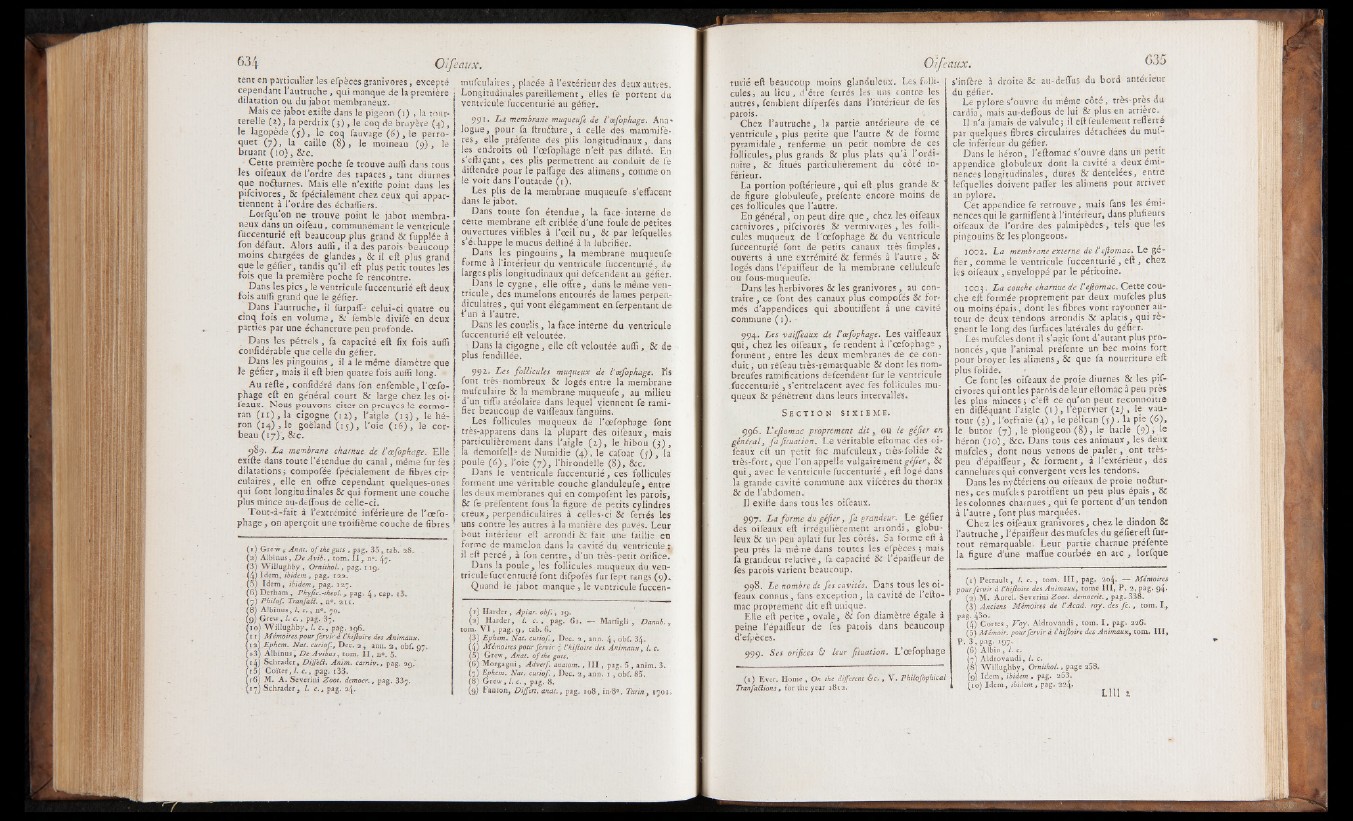 634
Oiseaux.
tent en particulier les eſpèces granivores, excepté
cependant l'autruche, qui manque de la première
dilatation ou du jabot membraneux.
Mais ce jabot exiſte dans le pigeon (1), la tour-
terelle (2), la perdrix (3), le coq de bruyère (4),
le lagopède (5), le coq ſauvage (6), le perro-
quet (7), la caille (8), le moineau (9), le
bruant (10), &c.
Cette première poche ſe trouve auſſi dans tous
les oiſeaux de l'ordre des rapaces, tant diurnes
que nocturnes. Mais elle n'exiſte point dans les
piſcivores, & ſpécialement chez ceux qui appar-
tiennent à l'ordre des échaſſiers.
Lorſqu'on ne trouve point le jabot membra-
neux dans un oiſeau, communément le ventricule
ſuccenturié eſt beaucoup plus grand & ſupplée à
ſon défaut. Alors auſſi, il a des parois beaucoup
moins chargées de glandes, & il eſt plus grand
que le géſier, tandis qu'il eſt plus petit toutes les
fois que la première poche ſe rencontre.
Dans les pics, le ventricule ſuccenturié eſt deux
fois auſſi grand que le géſier.
Dans l'autruche, il ſurpaſſe celui-ci quatre ou
cinq fois en volume, & ſemble diviſé en deux
parties par une échancrure peu profonde.
Dans les pétrels, ſa capacité eſt ſix fois auſſi
conſidérable que celle du géſier.
Dans les pingouins, il a le même diamètre que
le géſier, mais il eſt bien quatre fois auſſi long.
Au reſte, conſidéré dans ſon enſemble, l'œſo-
phage eſt en général court & large chez les oi-
ſeaux. Nous pouvons citer en preuves le cormo-
ran (11), la cigogne (12), l'aigle (13), le hé-
ron (14), le goéland (15), l'oie (16), le cor-
beau (17), &c.
989. La membrane charnue de l'œſophage. Elle
exiſte dans toute l'étendue du canal, même ſur ſes
dilatations; compoſée ſpécialement de fibres cir-
culaires, elle en offre cependant quelques-unes
qui ſont longitudinales & qui forment une couche
plus mince au-deſſous de celle-ci.
Tout-à-fait à l'extrémité inférieure de l'œſo-
phage, on aperçoit une troiſième couche de fibres
(1) Grew, Anat. of the guts, pag. 35, tab. 28.
(2) Albinus, De Avib., tom. II, n°. 47.
(3) Willughby, Ornithol., pag. 119.
(4) Idem, ibidem, pag. 122.
(5) Idem, ibidem, pag. 127.
(6) Derham, Phyſic.-theol., pag. 4, cap. 18.
(7) Philoſ. Tranſact., n°. 211.
(8) Albinus, l. c., n°. 70.
(9) Grew, l. c., pag. 37.
(10) Willughby, l. c., pag. 196.
(11) Mémoires pour ſervir à l'hiſtoire des Animaux.
(12) Ephem. Nat. curioſ., Dec. 2, ann. 2, obſ. 97.
(13) Albinus, De Avibus, tom. II, n°. 5.
(14) Schrader, Diſſect. Anim. carniv., pag. 29.
(15) Coiter, l. c., pag. 133.
(16) M. A. Severini Zoot. democr., pag. 337.
(17) Schrader, l. c., pag. 24.
muſculaires, placée à l'extérieur des deux autres.
Longitudinales pareillement, elles ſe portent du
ventricule ſuccenturié au géſier.
991. La membrane muqueuſe de l'œſophage. Ana-
logue, pour ſa ſtructure, à celle des mammifè-
res, elle préſente des plis longitudinaux, dans
les endroits où l'œſophage n'eſt pas dilaté. En
s'effaçant, ces plis permettent au conduit de ſe
diſtendre pour le paſſage des alimens, comme on
le voit dans l'outarde (1).
Les plis de la membrane muqueuſe s'effacent
dans le jabot.
Dans toute ſon étendue, la face interne de
cette membrane eſt criblée d'une foule de petites
ouvertures viſibles à l'œil nu, & par leſquelles
s'échappe le mucus deſtiné à la lubrifier.
Dans les pingouins, la membrane muqueuſe
forme à l'intérieur du ventricule ſuccenturié, de
larges plis longitudinaux qui deſcendent au géſier.
Dans le cygne, elle offre, dans le même ven-
tricule, des mamelons entourés de lames perpen-
diculaires, qui vont élégamment en ſerpentant de
l'un à l'autre.
Dans les courlis, la face interne du ventricule
ſuccenturié eſt veloutée.
Dans la cigogne, elle eſt veloutée auſſi, & de
plus fendillée.
992. Les follicules muqueux de l'œſophage. Ils
ſont très-nombreux & logés entre la membrane
muſculaire & la membrane muqueuſe, au milieu
d'un tiſſu aréolaire dans lequel viennent ſe rami-
fier beaucoup de vaiſſeaux ſanguins.
Les follicules muqueux de l'œſophage ſont
très-apparens dans la plupart des oiſeaux, mais
particulièrement dans l'aigle (2), le hibou (3),
la demoiſelle de Numidie (4), le caſoar (5), la
poule (6), l'oie (7), l'hirondelle (8), &c.
Dans le ventricule ſuccenturié, ces follicules
forment une véritable couche glanduleuſe, entre
les deux membranes qui en compoſent les parois,
& ſe préſentent ſous la figure de petits cylindres
creux, perpendiculaires à celles-ci & ſerrés les
uns contre les autres à la manière des pavés. Leur
bout intérieur eſt arrondi & fait une ſaillie en
forme de mamelon dans la cavité du ventricule;
il eſt percé, à ſon centre, d'un très-petit orifice.
Dans la poule, les follicules muqueux du ven-
tricule ſuccenturié ſont diſpoſés ſur ſept rangs (9).
Quand le jabot manque, le ventricule ſuccen-
(1) Harder, Apiar. obſ., 19.
(2) Harder, l. c., pag. 62. — Marſigli, Danub.,
tom. VI, pag. 9, tab. 6.
(3) Ephem. Nat. curioſ., Dec. 2, ann. 4, obſ. 34.
(4) Mémoires pour ſervir à l'hiſtoire des Animaux, l. c.
(5) Grew, Anat. of the guts.
(6) Morgagni, Adverſ. anatom., III, pag. 5, anim. 3.
(7) Ephem. Nat. curioſ., Dec. 2, ann. 1, obſ. 85.
(8) Grew, l. c., pag. 8.
(9) Fanton, Diſſert. anat., pag. 108, in-8°. Turin, 1701.
Oiſeaux.
635
turié eſt beaucoup moins glanduleux. Les folli-
cules, au lieu, d'être ſerrés les uns contre les
autres, ſemblent diſperſés dans l'intérieur de ſes
parois.
Chez l'autruche, la partie antérieure de ce
ventricule, plus petite que l'autre & de forme
pyramidale, renferme un petit nombre de ces
follicules, plus grands & plus plats qu'à l'ordi-
naire, & ſitués particulièrement du côté in-
férieur.
La portion poſtérieure, qui eſt plus grande &
de figure globuleuſe, préſente encore moins de
ces follicules que l'autre.
En général, on peut dire que, chez les oiſeaux
carnivores, piſcivores & vermivores, les folli-
cules muqueux de l'œſophage & du ventricule
ſuccenturié ſont de petits canaux très-ſimples,
ouverts à une extrémité & fermés à l'autre, &
logés dans l'épaiſſeur de la membrane celluleuſe
ou ſous-muqueuſe.
Dans les herbivores & les granivores, au con-
traire, ce ſont des canaux plus compoſés & for-
més d'appendices qui aboutiſſent à une cavité
commune (1).
994. Les vaiſſeaux de l'œſophage. Les vaiſſeaux
qui, chez les oiſeaux, ſe rendent à l'œſophage,
forment, entre les deux membranes de ce con-
duit, un réſeau très-remarquable & dont les nom-
breuſes ramifications deſcendent ſur le ventricule
ſuccenturié, s'entrelacent avec ſes follicules mu-
queux & pénètrent dans leurs intervalles.
SECTION SIXIEME.
996. L'eſtomac proprement dit, ou le géſier en
général, ſa ſituation. Le véritable eſtomac des oi-
ſeaux eſt un petit ſac muſculeux, très-ſolide &
très-fort, que l'on appelle vulgairement géſier, &
qui, avec le ventricule ſuccenturié, eſt logé dans
la grande cavité commune aux viſcères du thorax
& de l'abdomen.
Il exiſte dans tous les oiſeaux.
997. La forme du géſier, ſa grandeur. Le géſier
des oiſeaux eſt irrégulièrement arrondi, globu-
leux & un peu aplati ſur les côtés. Sa forme eſt à
peu près la même dans toutes les eſpèces; mais
ſa grandeur relative, ſa capacité & l'épaiſſeur de
ſes parois varient beaucoup.
998. Le nombre de ſes cavités. Dans tous les oi-
ſeaux connus, ſans exception, la cavité de l'eſto-
mac proprement dit eſt unique.
Elle eſt petite, ovale, & ſon diamètre égale à
peine l'épaiſſeur de ſes parois dans beaucoup
d'eſpèces.
999. Ses orifices & leur ſituation. L'œſophage
(1) Ever. Home, On the different &c., V. Philoſophical
Tranſactions, for the year 1812.
s'inſère à droite & au-deſſus du bord antérieur
du géſier.
Le pylore s'ouvre du même côté, très-près du
cardia, mais au-deſſous de lui & plus en arrière.
Il n'a jamais de valvule; il eſt ſeulement reſſerré
par quelques fibres circulaires détachées du muſ-
cle inférieur du géſier.
Dans le héron, l'eſtomac s'ouvre dans un petit
appendice globuleux dont la cavité a deux émi-
nences longitudinales, dures & dentelées, entre
leſquelles doivent paſſer les alimens pour arriver
au pylore.
Cet appendice ſe retrouve, mais ſans les émi-
nences qui le garniſſent à l'intérieur, dans pluſieurs
oiſeaux de l'ordre des palmipèdes, tels que les
pingouins & les plongeons.
1002. La membrane externe de l'eſtomac. Le gé-
ſier, comme le ventricule ſuccenturié, eſt, chez
les oiſeaux, enveloppé par le péritoine.
1003. La couche charnue de l'eſtomac. Cette cou-
che eſt formée proprement par deux muſcles plus
ou moins épais, dont les fibres vont rayonner au-
tour de deux tendons arrondis & aplatis, qui rè-
gnent le long des ſurfaces latérales du géſier.
Les muſcles dont il s'agit ſont d'autant plus pro-
noncés, que l'animal préſente un bec moins fort
pour broyer les alimens, & que ſa nourriture eſt
plus ſolide.
Ce ſont les oiſeaux de proie diurnes & les piſ-
civores qui ont les parois de leur eſtomac à peu près
les plus minces; c'eſt ce qu'on peut reconnoître
en diſſéquant l'aigle (1), l'épervier (2), le vau-
tour (3), l'orfraie (4), le pélican (5), la pie (6),
le butor (7), le plongeon (8), le harle (9), le
héron (10), &c. Dans tous ces animaux, les deux
muſcles, dont nous venons de parler, ont très-
peu d'épaiſſeur, & forment, à l'extérieur, des
cannelures qui convergent vers les tendons.
Dans les nyctériens ou oiſeaux de proie noctur-
nes, ces muſcles paroiſſent un peu plus épais, &
les colonnes charnues, qui ſe portent d'un tendon
à l'autre, ſont plus marquées.
Chez les oiſeaux granivores, chez le dindon &
l'autruche, l'épaiſſeur des muſcles du géſier eſt ſur-
tout remarquable. Leur partie charnue préſente
la figure d'une maſſue courbée en arc, lorſque
(1) Perrault, l. c., tom. III, pag. 204. — Mémoires
pour ſervir à l'hiſtoire des Animaux, tome III, P. 2, pag. 94.
(2) M. Aurel. Severini Zoot. democrit., pag. 338.
(3) Anciens Mémoires de l'Acad. roy. des ſc., tom. I,
pag. 430.
(4) Cortes, Voy. Aldrovandi, tom. I, pag. 226.
(5) Mémoir. pour ſervir à l'hiſtoire des Animaux, tom. III,
P. 3, pag. 197.
(6) Albin, l. c.
(7) Aldrovandi, l. c.
(8) Willughby, Ornithol., page 258.
(9) Idem, ibidem, pag. 253.
(10) Idem, ibidem, pag. 224.
Llll 2